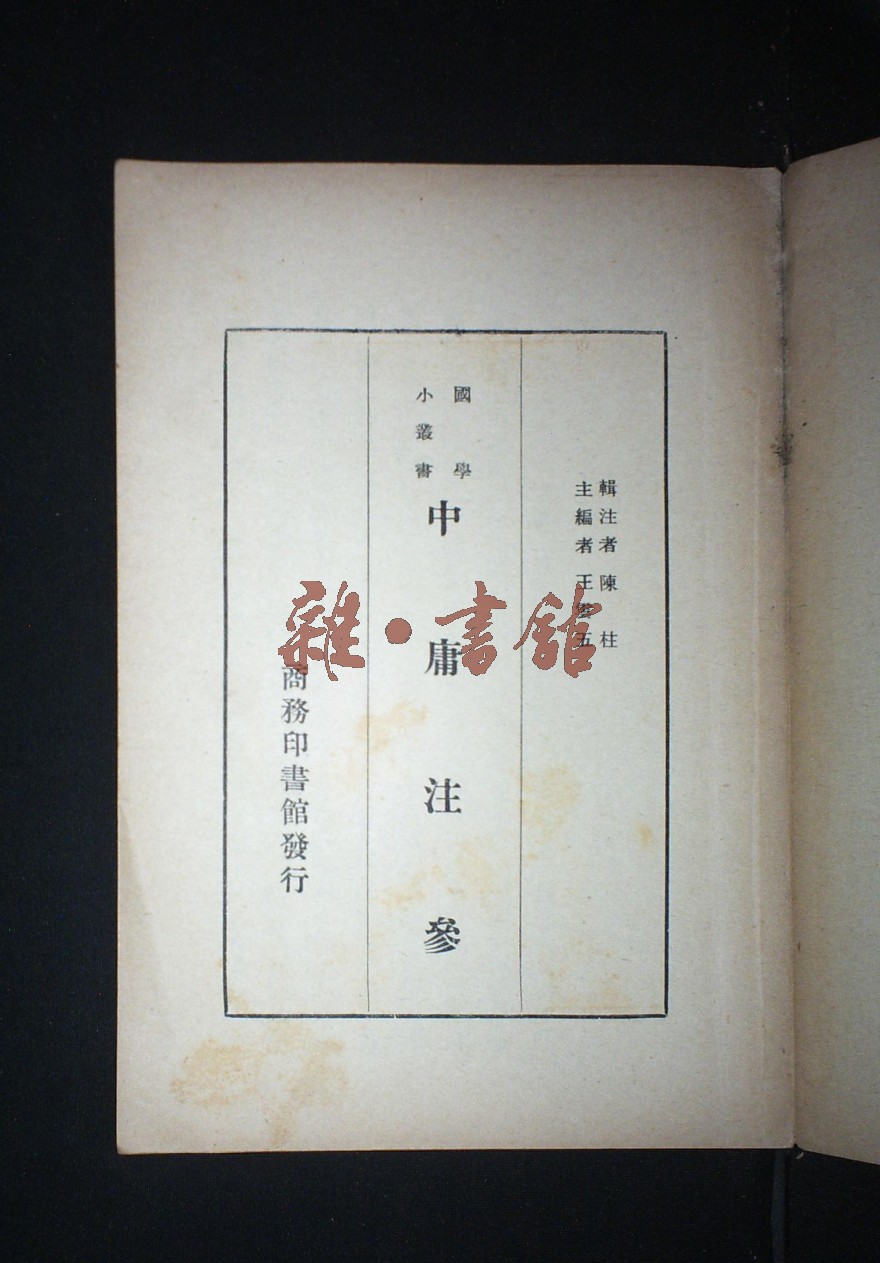 輯注者 陳柱
主編者 王雲五
國學
小叢書
中庸注參
商務印書館發行
雜·書舘